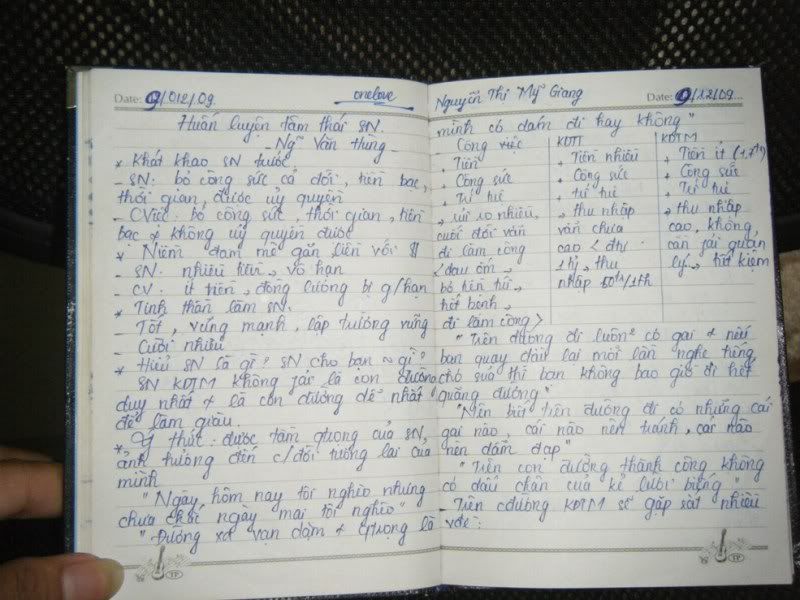 Date: 9/012/09 onelove
Huấn luyện tâm thái SN.
- Ngũ Văn Hùng -
* Khát khao SN trước
- SN: bỏ công sức cả đời, tiền bạc,
thời gian, được uỷ quyền
- CViệc: bỏ công sức, thời gian, tiền
bạc & không uỷ quyền được
* Niềm đam mê gắn liền với $
- SN: nhiều tiền, vô hạn
- CV: ít tiền, đồng lương bị g/hạn
* Tinh thần làm SN.
- Tốt, vững mạnh, lập trường vững
- Cười nhiều
* Hiểu SN là gì? SN cho bạn ~ gì?
SN KDTM không fải là con đường
duy nhất & là con đường dễ nhất
để làm giàu.
* Ý thức: được tầm qtrọng của SN,
ảnh hưởng đến c/đời tương lai của
mình
"Ngày hôm nay tôi nghèo nhưng
chưa chắc ngày mai tôi nghèo"
"Đường xa vạn dặm & qtrọng là
TP
Nguyễn Thị Mỹ Giang Date: 9/12/09
mình có dám đi hay không"
Công việc KDTT KDTM
+ Tiền + Tiền nhiều + Tiền ít (1,7tr)
+ Công sức + Công sức + Công sức
+ Tư tuệ + tư tuệ + Tư tuệ
→ rủi ro nhiều, → thu nhập → thu nhập
cuối đời vẫn vẫn chưa cao, không
đi làm công cao < đtư cần fải quản
< đau ốm → 1 tỷ, thu lý → tiết kiệm
bỏ tiền túi → nhập 50tr/1th
hết bệnh →
đi làm công >
"Trên đường đi luôn có gai & nếu
bạn quay đầu lại mỗi lần nghe tiếng
chó sủa thì bạn không bao giờ đi hết
quãng đường"
"Nên biết trên đường đi có những cái
gai nào, cái nào nên tránh, cái nào
nên dẫm đạp"
"Trên con đường thành công không
có dấu chân của kẻ lười biếng"
- Trên cđường KDTM sẽ gặp rất nhiều
vđề:
TP